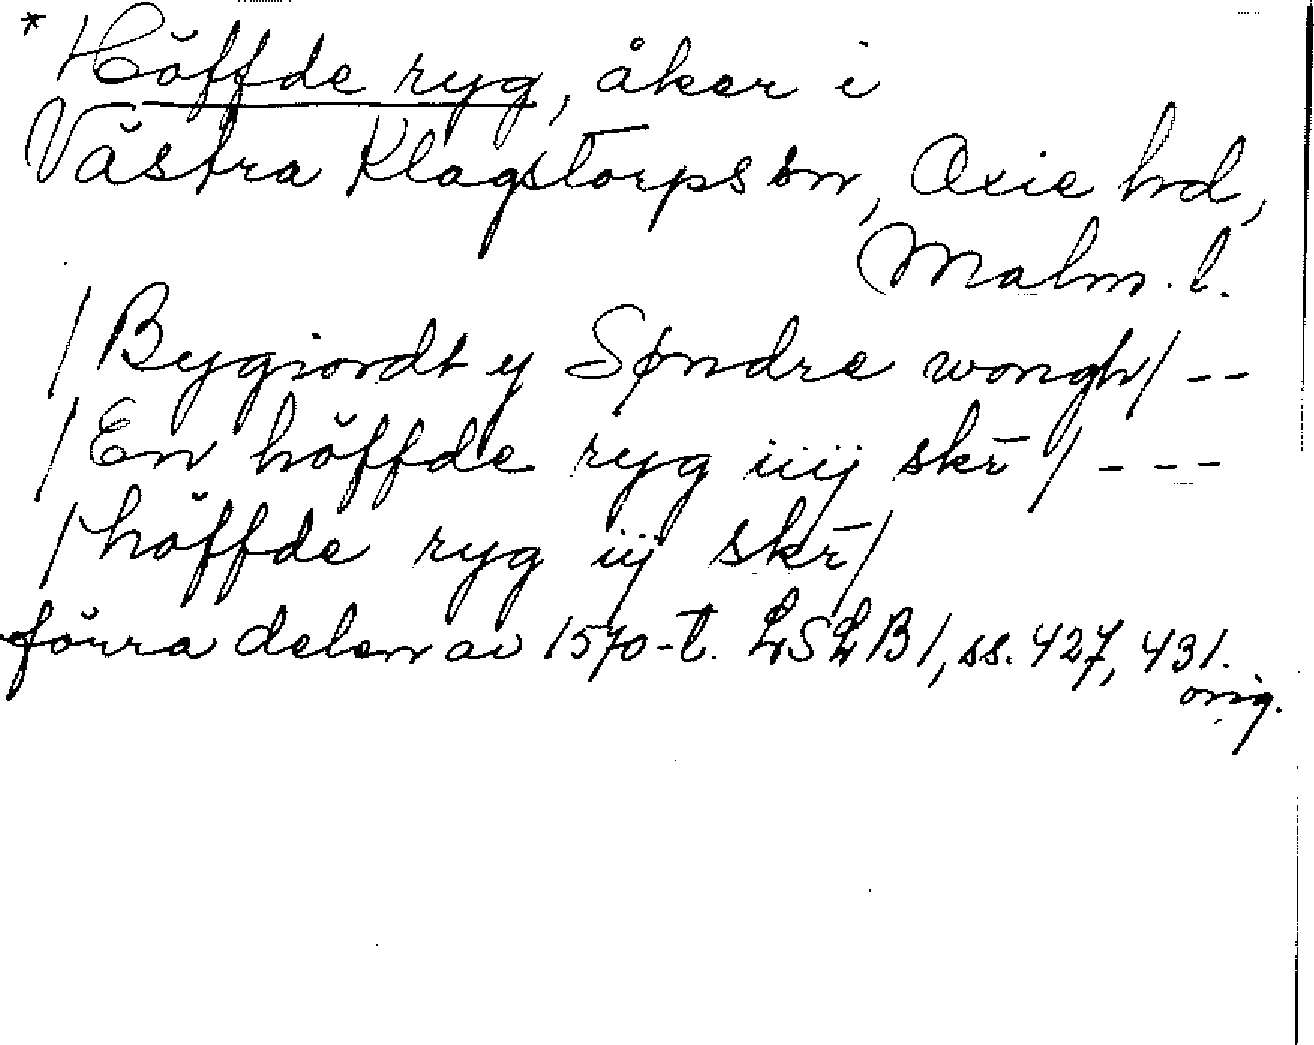 * Höffde ryg, åker i
Västra Klagstorps sn, Oxie hd,
Malm. l.
/Bygiordt y Søndre wongh/ --
/En höffde ryg iiij skr̄/ ---
/höffde ryg iij skr̄/
förra delen av 1570-t. LSLB 1, ss. 427, 431.
orig.